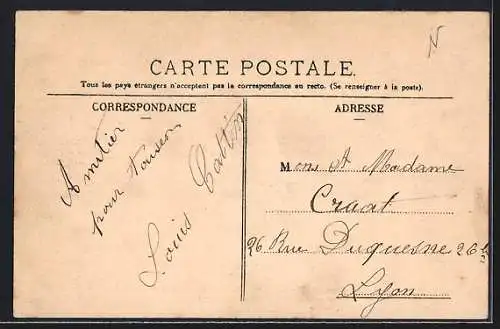 CARTE POSTALE.
Tous les pays étrangers n'acceptent pas la correspondance au recto. (Se renseigner à la poste).
CORRESPONDANCE
Amitier
pour tousern
Louis Cattin
ADRESSE
Mons et Madame
Cruat
26 Rue Duquesne 26
Lyon